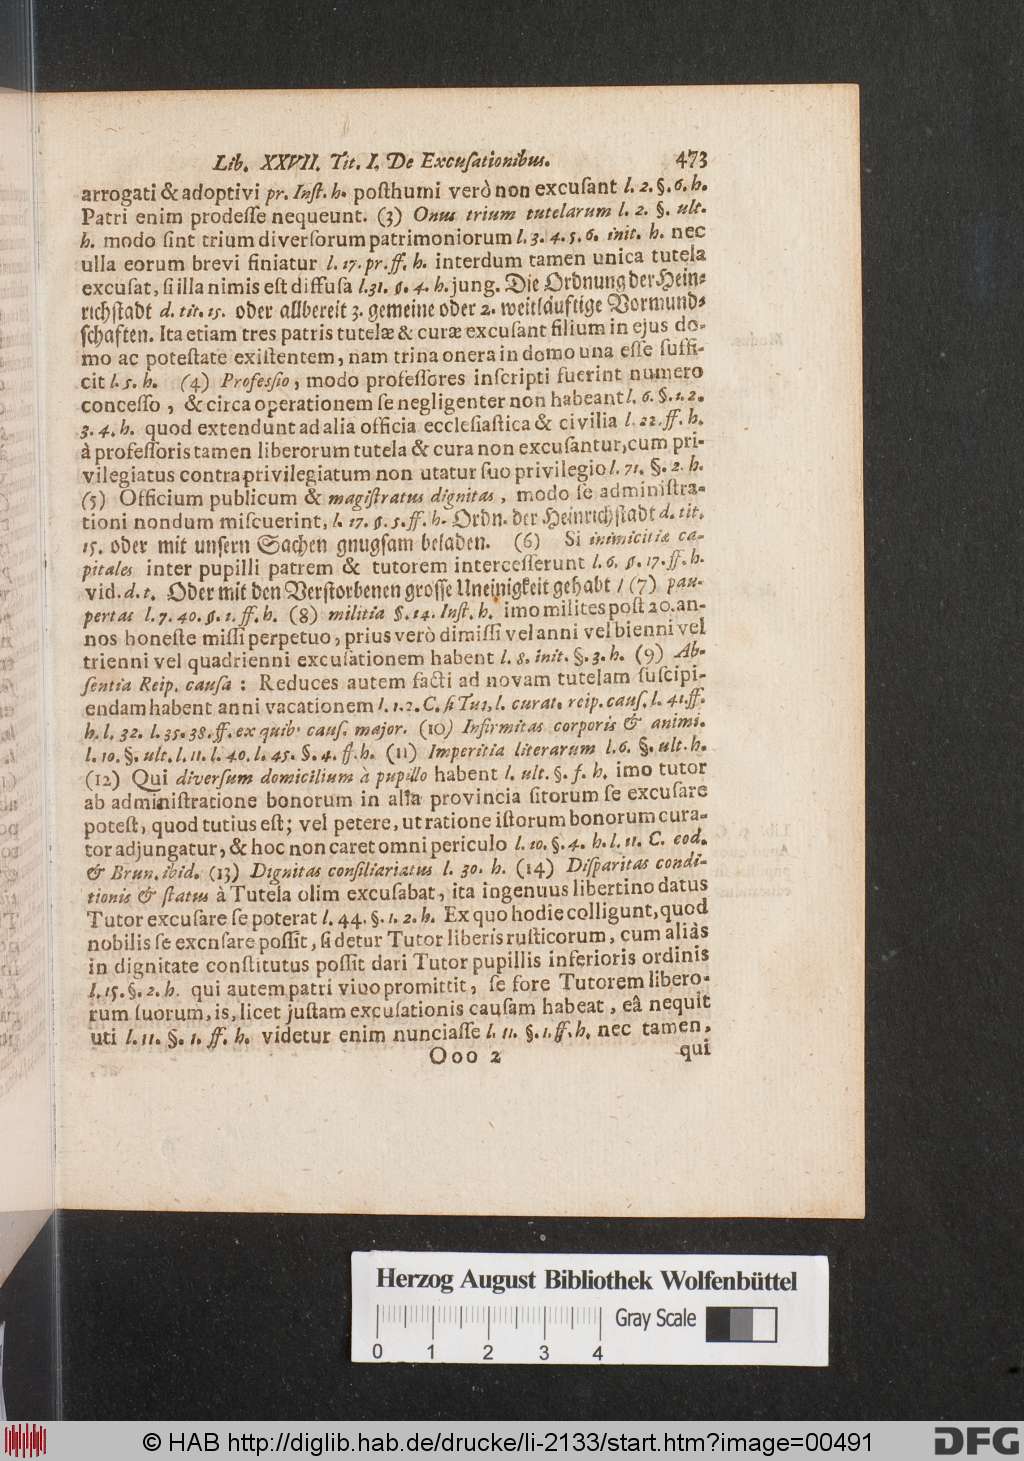 Lib. XXVII. Tit. I. De Excusationibus. 473
arrogati & adoptivi pr. Inst. h. posthumi verò non excusant l. 2. §. 6. h.
Patri enim prodesse nequeunt. (3) Onus trium tutelarum l. 2. §. ult.
h. modo sint trium diversorum patrimoniorum l. 3. 4. 5. 6. init. h. nec
ulla eorum brevi finiatur l. 17. pr. ff. h. interdum tamen unica tutela
excusat, si illa nimis est diffusa l. 31. §. 4. h. jung. Die Ordnung der Hein-
richstadt d. tit. 15. oder allbereit 3. gemeine oder 2. weitläuftige Vormund-
schaften. Ita etiam tres patris tutelæ & curæ excusant filium in ejus do-
mo ac potestate existentem, nam trina onera in domo una esse suffi-
cit l. 5. h. (4) Professio, modo professores inscripti fuerint numero
concesso, & circa operationem se negligenter non habeant l. 6. §. 1. 2.
3. 4. h. quod extendunt ad alia officia ecclesiastica & civilia l. 22. ff. h.
à professoris tamen liberorum tutela & cura non excusantur, cum pri-
vilegiatus contra privilegiatum non utatur suo privilegio l. 71. §. 2. h.
(5) Officium publicum & magistratus dignitas, modo se administra-
tioni nondum miscuerint, l. 17. §. 5. ff. h. Ordn. der Heinrichstadt d. tit.
15. oder mit unsern Sachen gnugsam beladen. (6) Si inimicitiæ ca-
pitales inter pupilli patrem & tutorem intercesserunt l. 6. §. 17. ff. h.
vid. d. t. Oder mit den Verstorbenen grosse Uneinigkeit gehabt / (7) pau-
pertas l. 7. 40. §. 1. ff. h. (8) militia §. 14. Inst. h. imo milites post 20. an-
nos honeste missi perpetuo, prius verò dimissi vel anni vel bienni vel
trienni vel quadrienni excusationem habent l. 8. init. §. 3. h. (9) Ab-
sentia Reip. causa : Reduces autem facti ad novam tutelam suscipi-
endam habent anni vacationem l. 1. 2. C. si Tut. l. curat. reip. caus. l. 41. ff.
h. l. 32. l. 35. 38. ff. ex quib. caus. major. (10) Infirmitas corporis & animi.
l. 10. §. ult. l. 11. l. 40. l. 45. §. 4. ff. h. (11) Imperitia literarum l. 6. §. ult. h.
(12) Qui diversum domicilium à pupillo habent l. ult. §. f. h. imo tutor
ab administratione bonorum in alia provincia sitorum se excusare
potest, quod tutius est; vel petere, ut ratione istorum bonorum cura-
tor adjungatur, & hoc non caret omni periculo l. 10. §. 4. h. l. 11. C. eod.
& Brun. ibid. (13) Dignitas consiliariatus l. 30. h. (14) Disparitas condi-
tionis & status à Tutela olim excusabat, ita ingenuus libertino datus
Tutor excusare se poterat l. 44. §. 1. 2. h. Ex quo hodie colligunt, quod
nobilis se excnsare possit, si detur Tutor liberis rusticorum, cum aliàs
in dignitate constitutus possit dari Tutor pupillis inferioris ordinis
l. 15. §. 2. h. qui autem patri vivo promittit, se fore Tutorem libero-
rum suorum, is, licet justam excusationis causam habeat, eâ nequit
uti l. 11. §. 1. ff. h. videtur enim nunciasse l. 11. §. 1. ff. h. nec tamen,
Ooo 2 qui
Herzog August Bibliothek Wolfenbüttel
Gray Scale
0 1 2 3 4
© HAB http://diglib.hab.de/drucke/li-2133/start.htm?image=00491
DFG